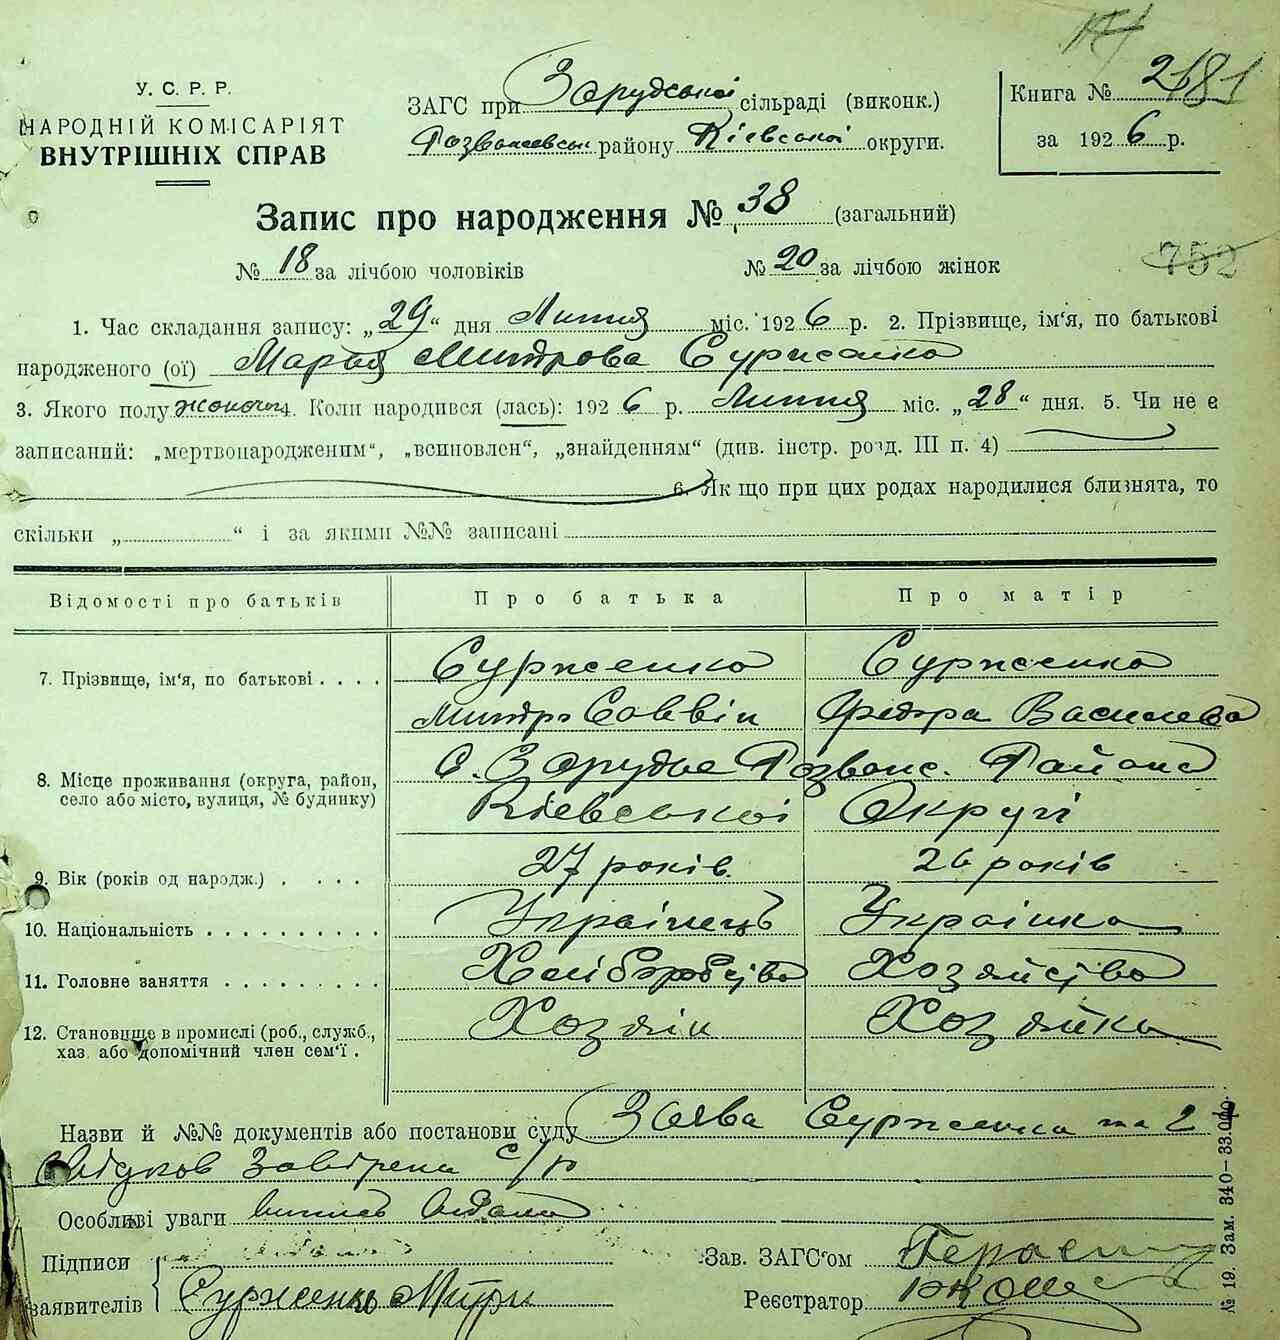 У. С. Р. Р.
НАРОДНІЙ КОМІСАРІЯТ
ВНУТРІШНІХ СПРАВ
ЗАГС при Зарудської сільраді (виконк.)
Розважевськ. району Кіевської округи.
Книга № 2181
за 1926 р.
Запис про народження № 38 (загальний)
№ 18 за лічбою чоловіків № 20 за лічбою жінок
752
1. Час складання запису: „29“ дня Липня міс. 1926 р. 2. Прізвище, ім'я, по батькові
народженого (ої) Марья Митрова Сурженко
3. Якого полу жоночи. Коли народився (лась): 1926 р. Липня міс. „28“ дня. 5. Чи не є
записаний: „мертвонародженим“, „всиновлен“, „знайденням“ (див. інстр. розд. III п. 4)
6. Як що при цих родах народилися близнята, то
скільки „ “ і за якими №№ записані
Відомості про батьків Про батька Про матір
7. Прізвище, ім'я, по батькові . . . . Сурженко Сурженко
Митро Саввін Фёдора Василева
8. Місце проживання (округа, район,
село або місто, вулиця, № будинку)
С. Зарудье Розваж. Района
Кіевської Округі
9. Вік (років од народж.) . . . . 27 років 26 років
10. Національність . . . . . . . . . . Українець Українка
11. Головне заняття . . . . . . . . . Хліборобство Хозяйство
12. Становище в промислі (роб., служб.,
хаз. або допомічний член сем'ї .
Хозяін Хозяйка
Назви й №№ документів або постанови суду Заява Сурженка та 2
свідков завірена с/р
Особливі уваги
Підписи
заявителів
Сурженко Митро
Зав. ЗАГС'ом
Реєстратор
№ 19. Зам. 340—33.000.